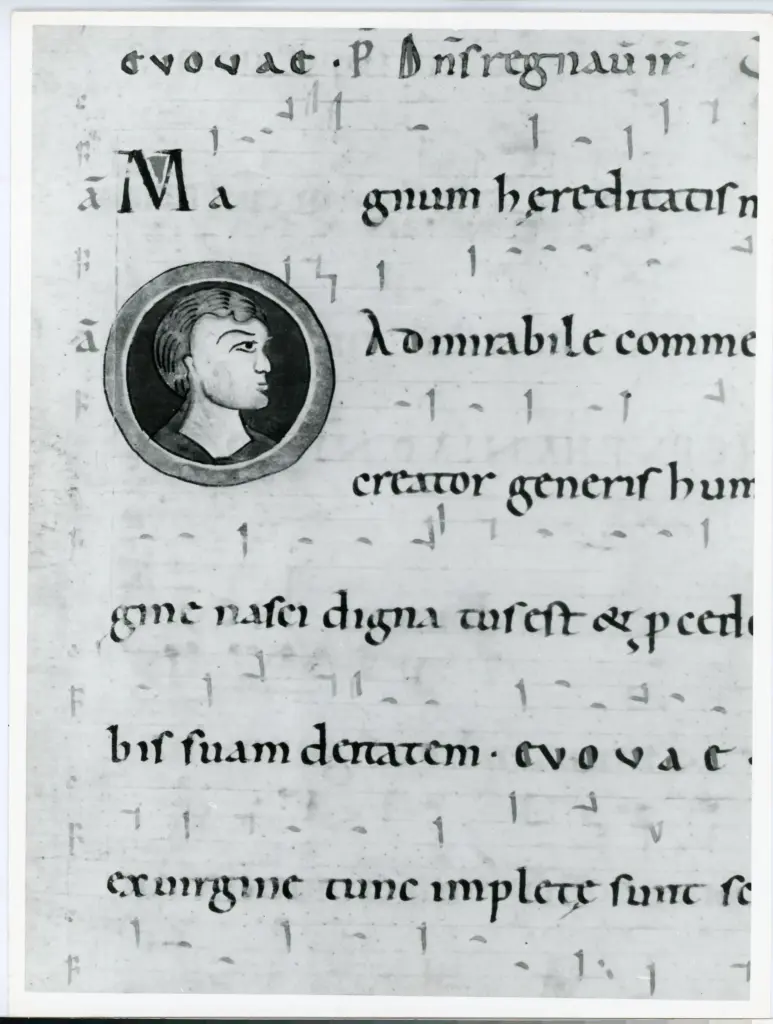 evovae · P Dn̄s regnaū ir
ā Ma gnum hęreditatis m
ā O Admirabile comme
creator generis hum
gine nasci digna tus est & pcede
bis suam deitatem · evovae ·
ex uirgine tunc impletę sunt sc